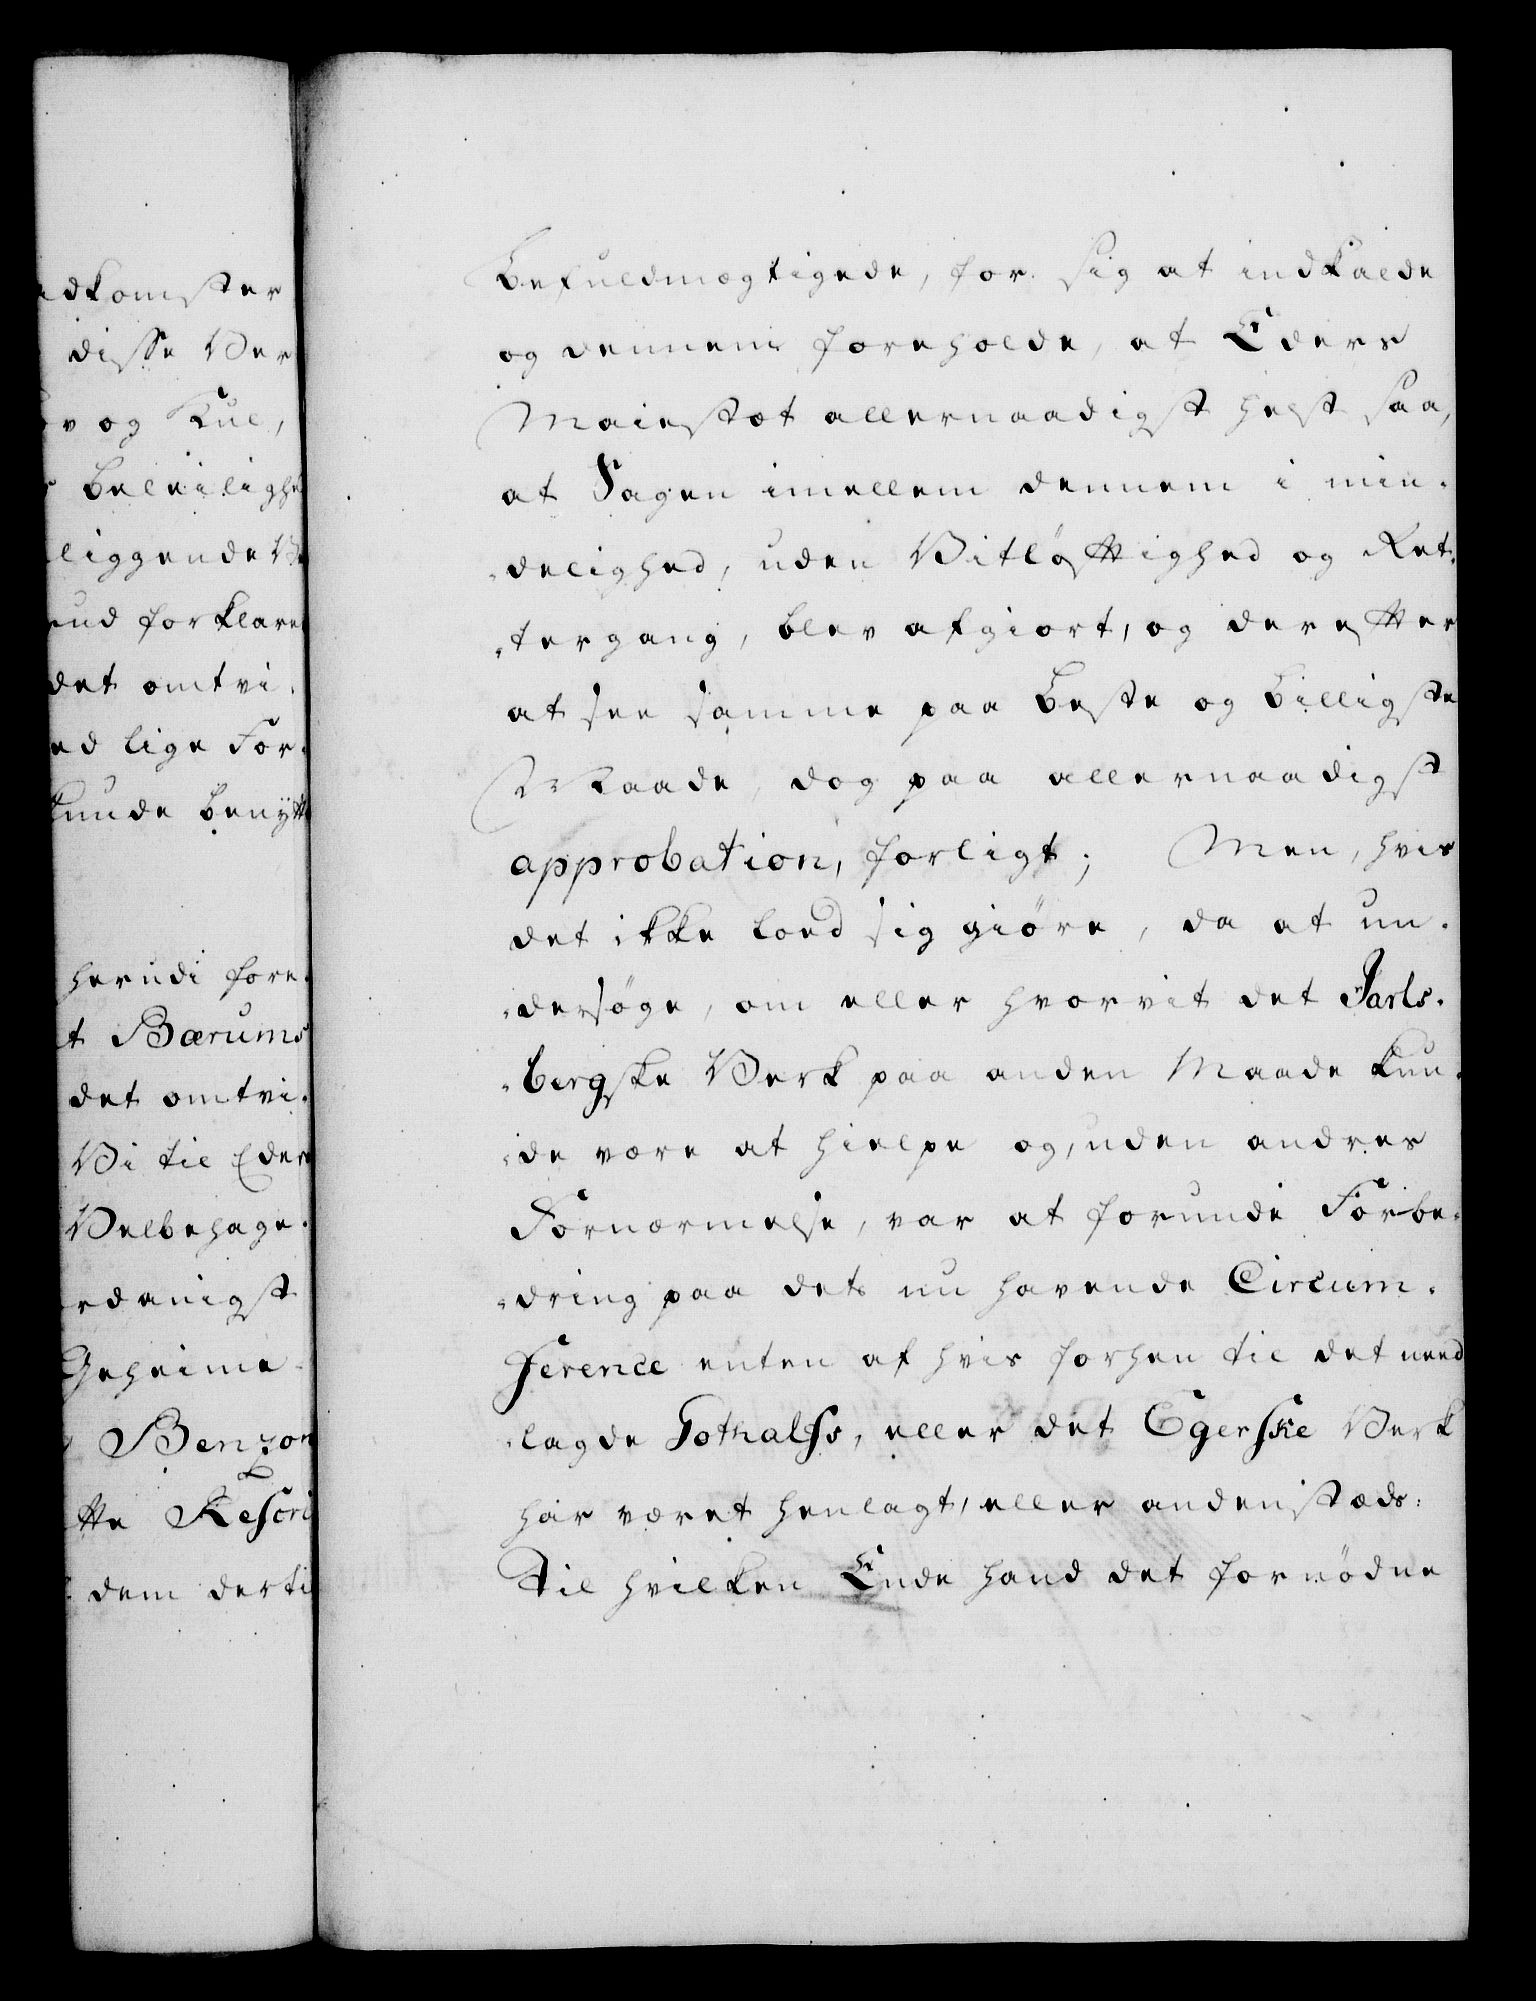 adkomster
disse Ver
og Kul,
beleilighe
liggende
forklare
det omtvi
ed lige For-
kunde benÿtt
herudi fore-
t Bærums
det omtvi-
Vi til Eders
Velbehage-
rdanigst
Geheime-
Benzon
tte Rescri
dem derti
Befuldmægtigede, for sig at indkalde
og dennem foreholde, at Eders
Maiestæt allernaadigst helst saa,
at Sagen imellem dennem i min-
delighed, uden Vitløfttighed og Ret-
tergang, blev afgiort, og derefter
at see samme paa beste og billigste
Maade, dog paa allernaadigst
approbation, forligt; Men, hvis
det ikke lod sig giöre, da at un-
dersöge, om eller hvorvit det Jarls-
bergske Verk paa anden Maade kun-
de være at hielpe og, uden andres
Fornærmelse, var at forunde Forbe-
dring paa dets nu havende Circum-
ference enten af hvis forhen til det need
lagde Tothalfs, eller det Egerske Verk
har været henlagt, eller andenstæds:
Til hvilken Ende hand det fornødne